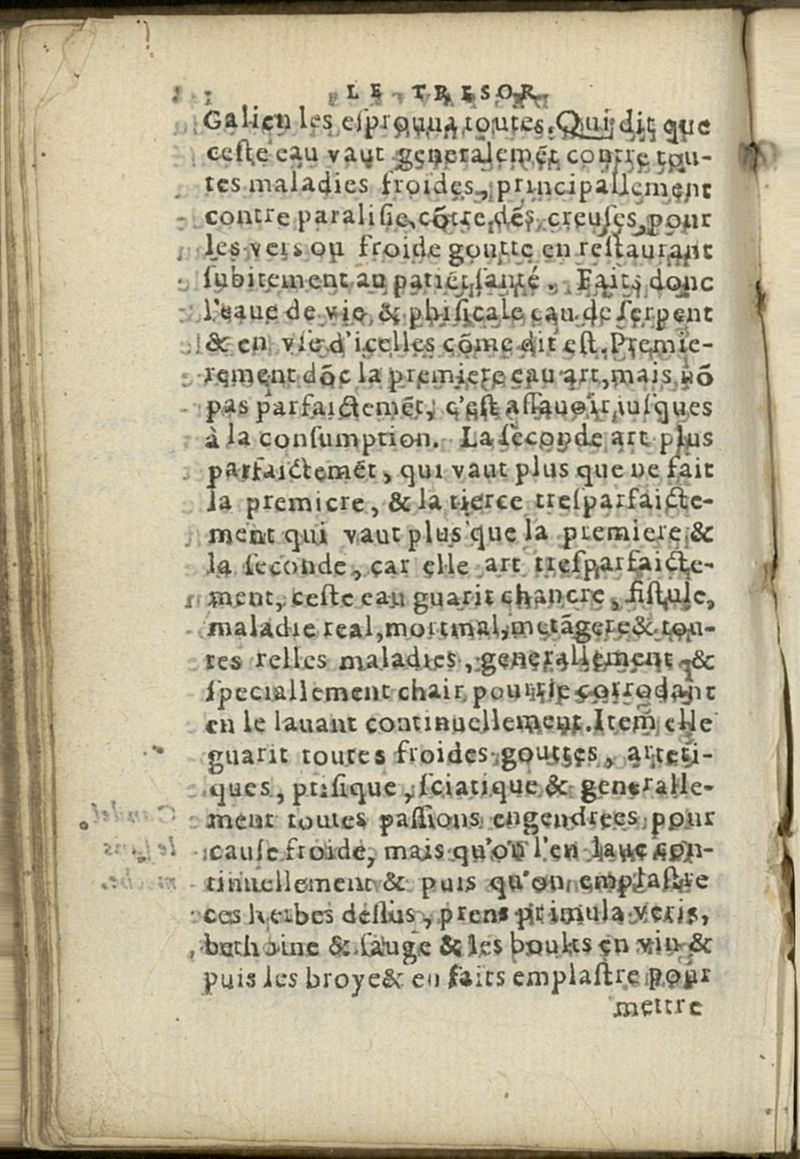 LE TRESOR
Galien les eſprouua toutes. Qui dit que
ceſte eau vaut generalemẽt contre tou-
tes maladies froides, principallement
contre paraliſie, cõtre dés creuſes, pour
les vers ou froide goutte en reſtaurant
ſubitement au patiẽt ſanté. Faits donc
l'eaue de vie & phiſicale eau de ſerpent
& en vie d'icelles cõme dit eſt. Premie-
rement dõc la premiere eau art, mais nõ
pas parfaictemẽt, c'eſt aſſauoir iuſques
à la conſumption. La ſeconde art plus
parfaictemẽt, qui vaut plus que ne fait
la premiere, & la tierce treſparfaicte-
ment qui vaut plus que la premiere &
la ſeconde, car elle art treſparfaicte-
ment, ceſte eau guarit chancre, fiſtule,
maladie real, mortmal, metãgere & tou-
tes telles maladies, generallement &
ſpeciallement chair pourrie corrodant
en le lauant continuellement. Item elle
guarit toutes froides gouttes, arteti-
ques, ptiſique, ſciatique & generalle-
ment toutes paſſions engendrees pour
cauſe froide, mais qu'on l'en laue con-
tinuellement & puis qu'on emplaſtre
ces herbes deſſus, prens primula veris,
bethoine & ſauge & les boulis en vin &
puis les broye & en faits emplaſtre pour
mettre